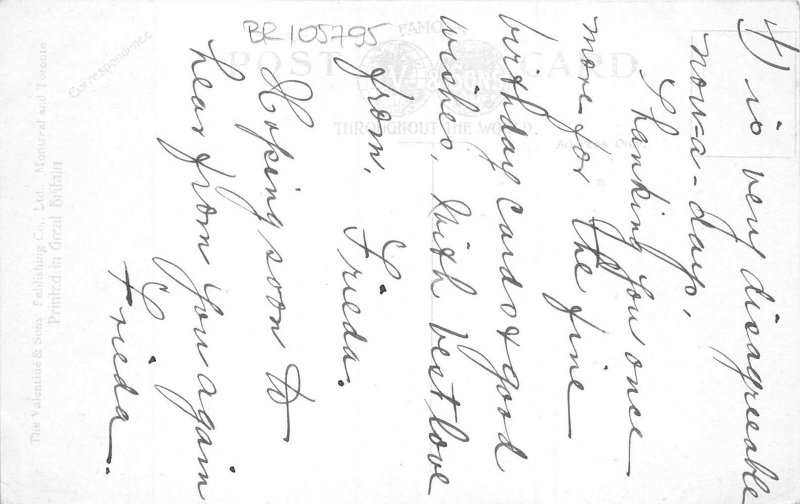 It is very disagreeable
now-a-days,
Thanking you once
more for the fine
birthday cards & good
wishes, With best love
from, Frieda.
Hoping soon to
hear from you again
Frieda.
BR105795
FAMOUS
POST CARD.
V & SONS
THROUGHOUT THE WORLD.
Correspondence
Address Only
The Valentine & Sons Publishing Co., Ltd. Montreal and Toronto
Printed in Great Britain